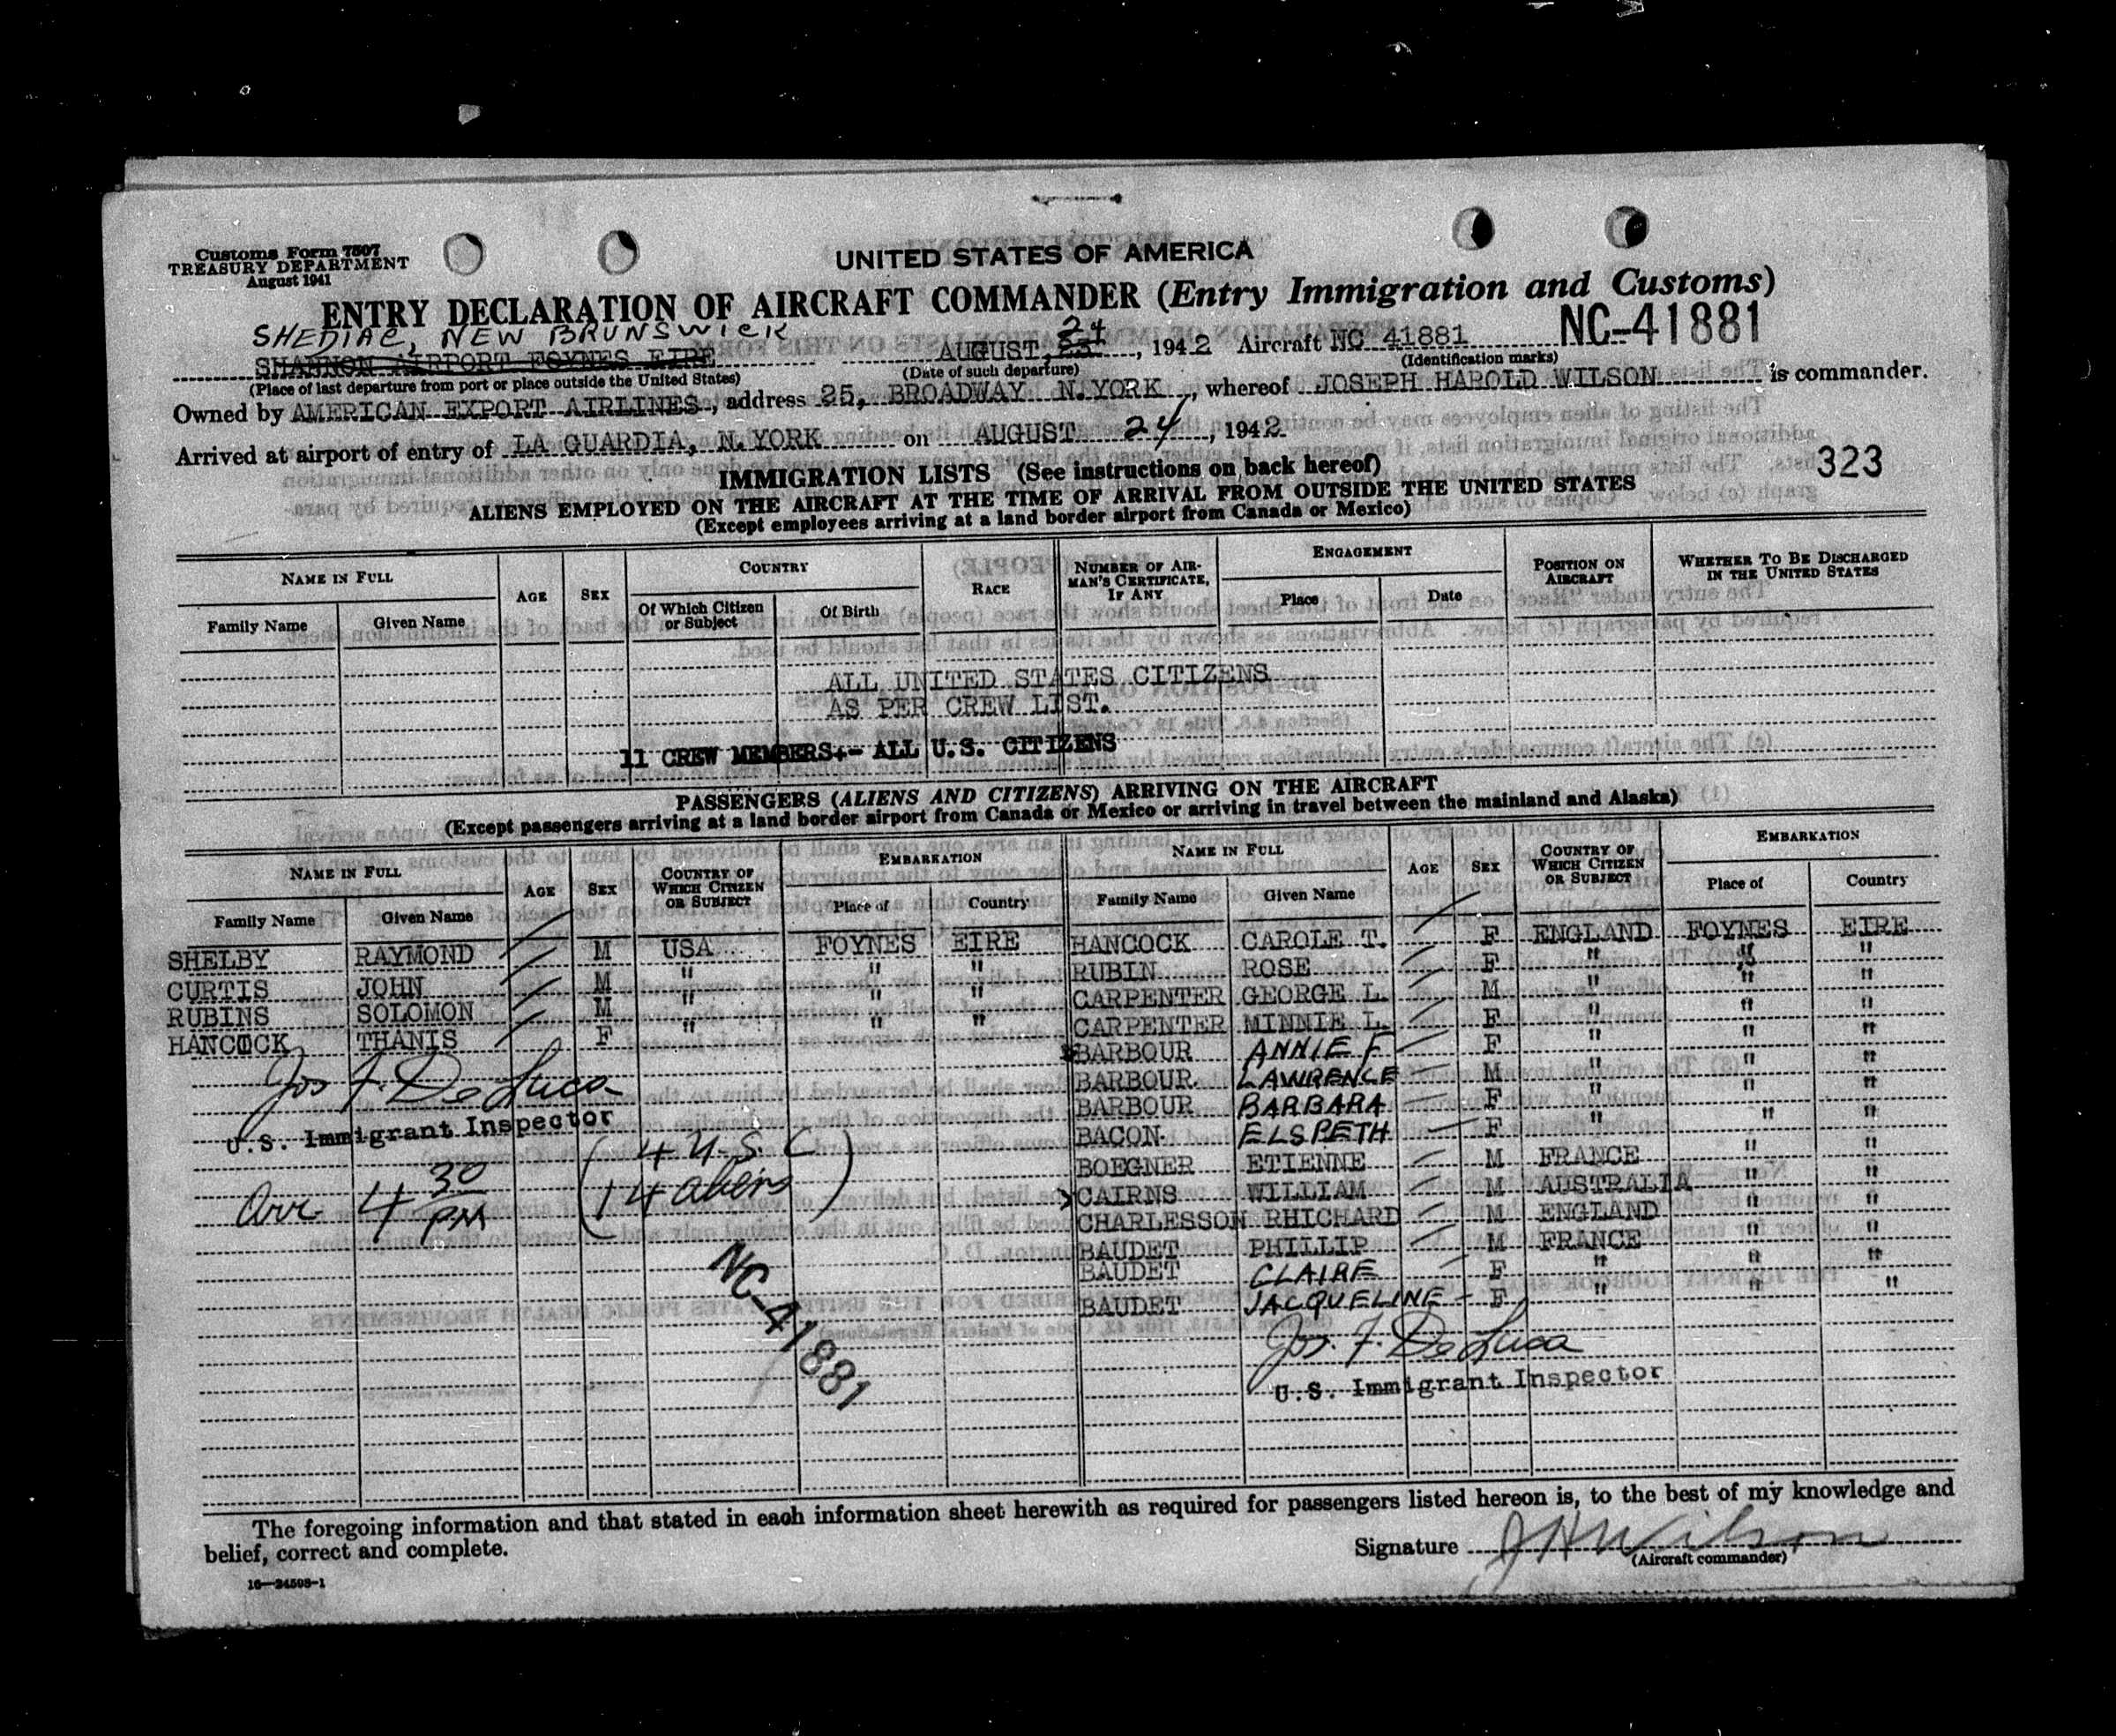 Customs Form 7507
TREASURY DEPARTMENT
August 1941
UNITED STATES OF AMERICA
ENTRY DECLARATION OF AIRCRAFT COMMANDER (Entry Immigration and Customs)
SHEDIAC, NEW BRUNSWICK
SHANNON AIRPORT FOYNES EIRE AUGUST, 23 24, 1942 Aircraft NC 41881 NC-41881
(Place of last departure from port or place outside the United States) (Date of such departure) (Identification marks)
Owned by AMERICAN EXPORT AIRLINES, address 25, BROADWAY N.YORK, whereof JOSEPH HAROLD WILSON is commander.
Arrived at airport of entry of LA GUARDIA, N.YORK on AUGUST 24, 1942
323
IMMIGRATION LISTS (See instructions on back hereof)
ALIENS EMPLOYED ON THE AIRCRAFT AT THE TIME OF ARRIVAL FROM OUTSIDE THE UNITED STATES
(Except employees arriving at a land border airport from Canada or Mexico)
NAME IN FULL AGE SEX COUNTRY RACE NUMBER OF AIRMAN'S CERTIFICATE, IF ANY ENGAGEMENT POSITION ON AIRCRAFT WHETHER TO BE DISCHARGED IN THE UNITED STATES
Family Name Given Name Of Which Citizen or Subject Of Birth Place Date
ALL UNITED STATES CITIZENS
AS PER CREW LIST.
11 CREW MEMBERS - ALL U.S. CITIZENS
PASSENGERS (ALIENS AND CITIZENS) ARRIVING ON THE AIRCRAFT
(Except passengers arriving at a land border airport from Canada or Mexico or arriving in travel between the mainland and Alaska)
NAME IN FULL AGE SEX COUNTRY OF WHICH CITIZEN OR SUBJECT EMBARKATION NAME IN FULL AGE SEX COUNTRY OF WHICH CITIZEN OR SUBJECT EMBARKATION
Family Name Given Name Place of Country Family Name Given Name Place of Country
SHELBY RAYMOND M USA FOYNES EIRE
CURTIS JOHN M " " "
RUBINS SOLOMON M " " "
HANCOCK THANIS F " " "
Jos F. De Luca
U.S. Immigrant Inspector
Arr 4 30 PM
(4 U.S. C
14 aliens)
NC-41881
HANCOCK CAROLE T. F ENGLAND FOYNES EIRE
RUBIN ROSE F " " "
CARPENTER GEORGE L. M " " "
CARPENTER MINNIE L. F " " "
BARBOUR ANNIE F F " " "
BARBOUR LAWRENCE M " " "
BARBOUR BARBARA F " " "
BACON ELSPETH F " " "
BOEGNER ETIENNE M FRANCE " "
CAIRNS WILLIAM M AUSTRALIA " "
CHARLESSON RHICHARD M ENGLAND " "
BAUDET PHILLIP M FRANCE " "
BAUDET CLAIRE F " " "
BAUDET JACQUELINE F " " "
Jos. F. De Luca
U.S. Immigrant Inspector
The foregoing information and that stated in each information sheet herewith as required for passengers listed hereon is, to the best of my knowledge and
belief, correct and complete.
Signature JH Wilson
(Aircraft commander)
16—24598-1